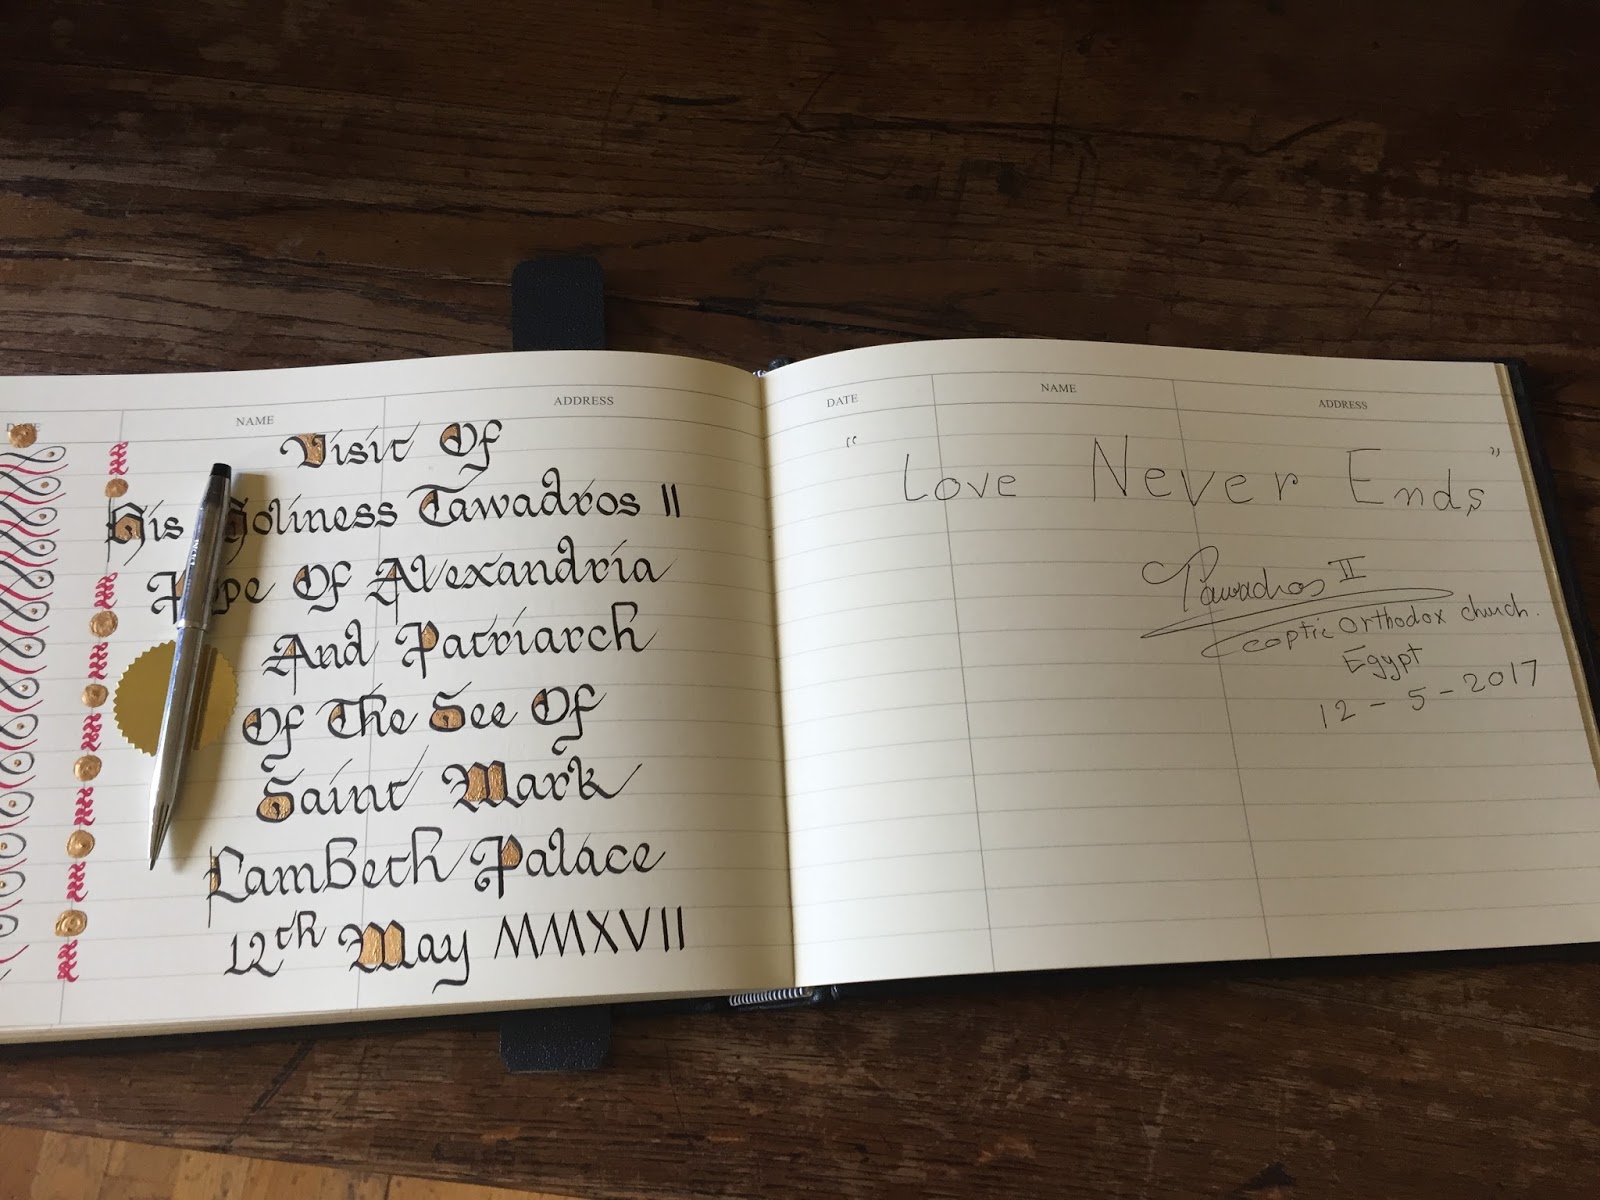 DATE NAME ADDRESS
Visit Of
His Holiness Tawadros II
Pope Of Alexandria
And Patriarch
Of The See Of
Saint Mark
Lambeth Palace
12th May MMXVII
DATE NAME ADDRESS
“ Love Never Ends ”
Tawadros II
Coptic Orthodox church.
Egypt
12 - 5 - 2017